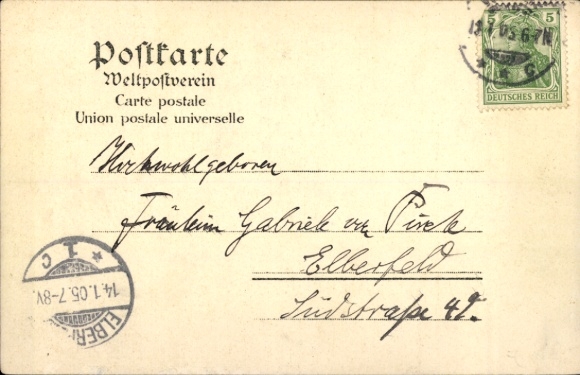 Postkarte
Weltpostverein
Carte postale
Union postale universelle
5 5
DEUTSCHES REICH
6-7N
* * c
Hochwohlgeboren
Fräulein Gabriele von
Elberfeld
Südstraße 42.
* 1 c
14.1.05.7-8V.